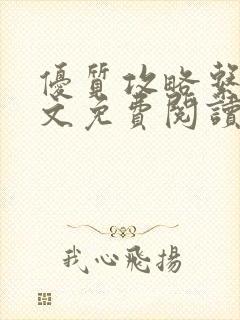 優質攻略系
文免費閱讀
我心飛揚